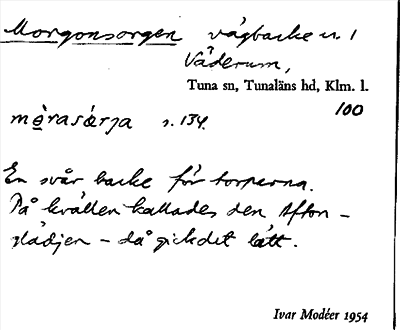 Morgonsorgen vägbacke n. 1
Väderum,
Tuna sn, Tunaläns hd, Klm. l.
100
mò̤rasárja s. 134.
En svår backe för torparna.
På kvällen kallades den Afton-
glädjen - då gick det lätt.
Ivar Modéer 1954